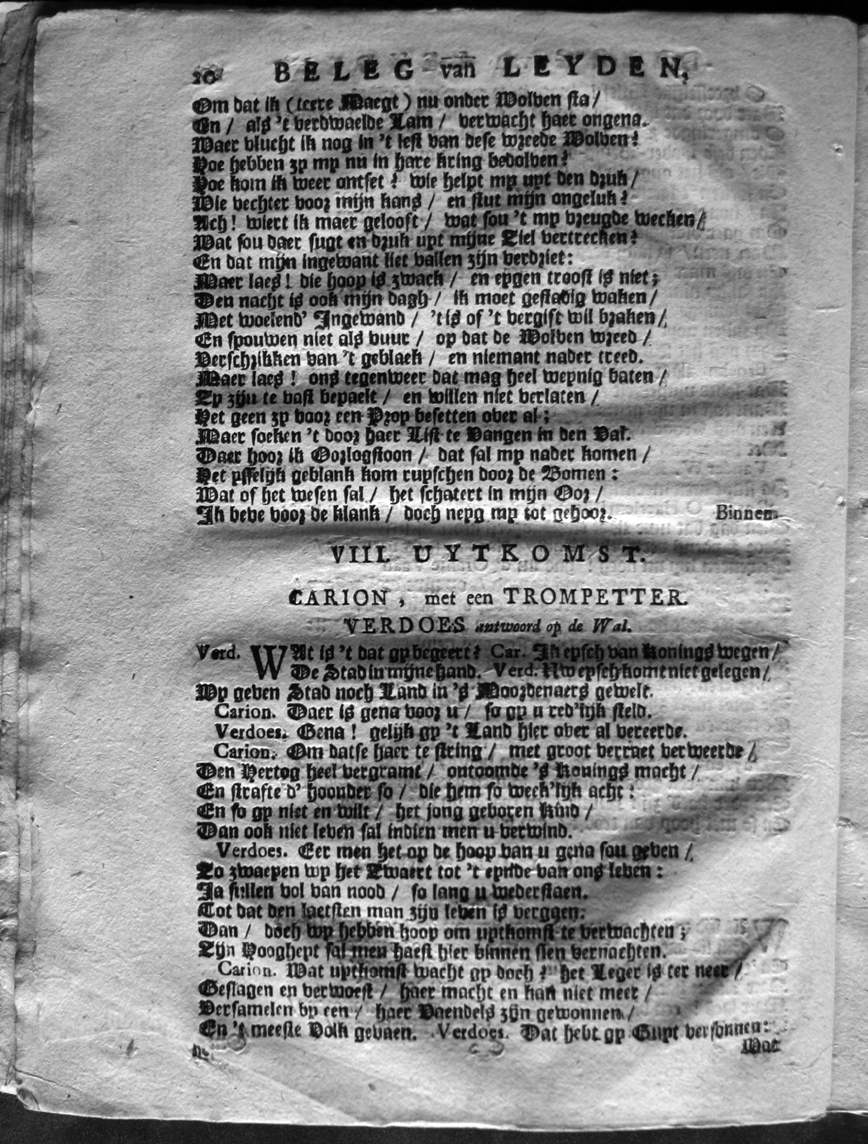 20 BELEG van LEYDEN,
Om dat ik (teere Maegt) nu onder Wolven sta/
En/ als 't verdwaelde Lam/ verwacht haer ongena.
Waer vlucht ik nog in 't lest van dese wreede Wolven?
Hoe hebben zy my nu in hare kring bedolven?
Hoe kom ik weer ontset? wie helpt my uyt den druk/
Wie vechter voor mijn kans/ en stut mijn ongeluk?
Ach! wiert ik maer gelooft/ wat sou 't my vreugde wecken/
Wat sou daer sugt en druk uyt mijne Ziel vertrecken?
En dat mijn ingewant liet vallen zijn verdriet:
Maer laes! die hoop is zwack/ en eygen troost is niet;
Den nacht is ook mijn dagh/ ik moet gestadig waken/
Met woelend' Ingewand/ 't is of 't vergift wil braken/
En spouwen niet als vuur/ op dat de Wolven wreed/
Verschrikken van 't geblaek/ en niemant nader treed.
Maer laes! ons tegenweer dat mag heel weynig baten/
Zy zijn te vast bepaelt/ en willen niet verlaten/
Het geen zy voor een Proy besetten over al;
Maer soeken 't door haer List te Vangen in den Val.
Daer hoor ik Oorlogstoon/ dat sal my nader komen/
Het ysselijk geblank kom ruyschen door de Bomen:
Wat of het wesen sal/ het schatert in mijn Oor/
Ik beve voor de klank/ doch neyg my tot gehoor. Binnen.
VIII. UYTKOMST.
CARION, met een TROMPETTER.
VERDOES antwoord op de Wal.
Verd. WAt is 't dat gy begeert? Car. Ik eysch van Konings wegen/
De Stad in mijne hand. Verd. Uw eysch komt niet gelegen/
Wy geven Stad noch Land in 's Moordenaers gewelt.
Carion. Daer is gena voor u/ so gy u red'lyk steld.
Verdoes. Gena! gelijk gy 't Land hier over al vereerde.
Carion. Om datse haer te string/ met groot verraet verweerde/
Den Hertog heel vergramt/ ontoomde 's Konings macht/
En strafte d' hoonder so/ die hem so week'lijk acht:
En so gy niet en wilt/ het jong geboren Kind/
Dan ook niet leven sal indien men u verwind.
Verdoes. Eer men het op de hoop van u gena sou geven/
Zo zwaeyen wy het Zwaert tot 't eynde van ons leven:
Ja sullen vol van nood/ so lang u wederstaen.
Tot dat den laetsten man zijn leven is vergaen.
Dan/ doch wy hebben hoop om uytkomst te verwachten;
Zijn Hoogheyt sal men haest hier binnen sien vernachten.
Carion. Wat uytkomst wacht gy doch? het Leger is ter neer/
Geslagen en verwoest/ haer macht en kan niet meer/
Versamelen by een/ haer Vaendels zijn gewonnen/
En 't meeste Volk gevaen. Verdoes. Dat hebt gy Guyt versonnen:
Wat